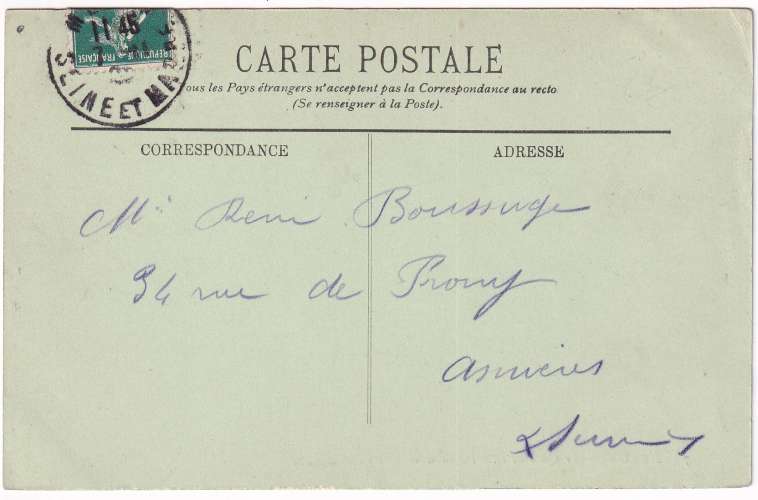 11 45
REPUBLIQUE FRANÇAISE
SEINE ET MARNE
CARTE POSTALE
ous les Pays étrangers n'acceptent pas la Correspondance au recto
(Se renseigner à la Poste).
CORRESPONDANCE
ADRESSE
Mr René Boussuge
34 rue de Prony
Asnières
Seine